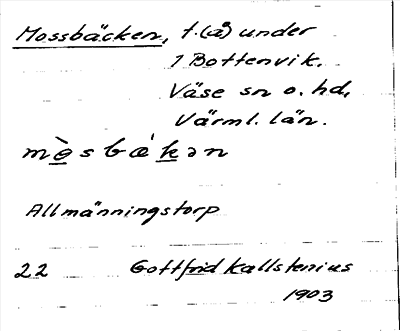 Mossbäcken, t.(å) under
1 Bottenvik.
Väse sn o. hd,
Värml. län.
mòsbákən
Allmänningstorp
22 Gottfrid Kallstenius
1903